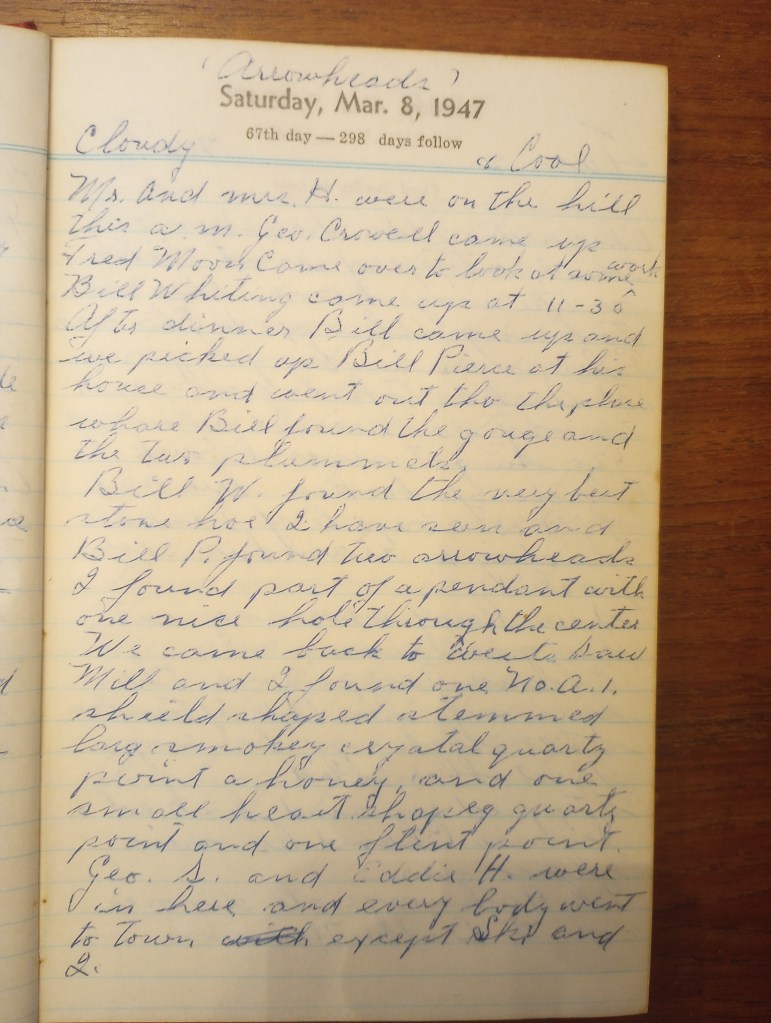 "Arrowheads"
Saturday, Mar. 8, 1947
67th day — 298 days follow
Cloudy & Cool
Mr. and mrs. H. were on the hill
this a m. Geo. Crowell came up
Fred Moors Came over to look at some work
Bill Whiting came up at 11-30
After dinner Bill came up and
we picked up Bill Pierce at his
house and went out tho the place
whare Bill found the gouge and
the two plummets.
Bill W. found the very best
stone hoe I have seen and
Bill P. found two arrowheads
I found part of a pendant with
one nice hole through the center
We came back to Saw
Mill and I found one No. A. 1.
shield shaped stemmed
larg smokey crystal quartz
point a honey, and one
small heart shapeg quartz
point and one flint point.
Geo. S. and Eddie H. were
in here and every body went
to town except Ski and
I.